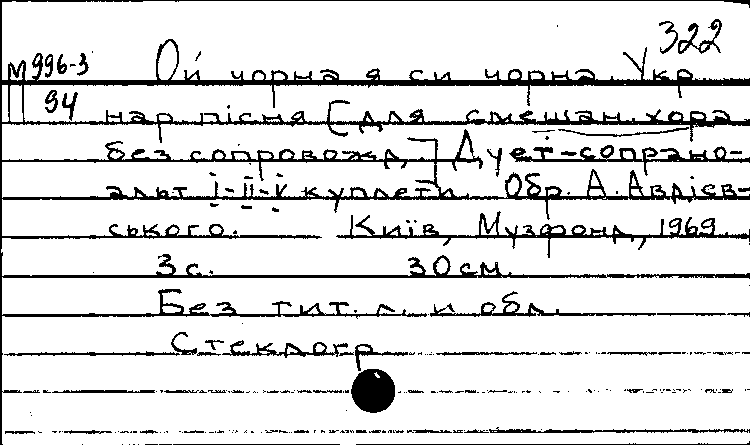 322
М 996-3
94
Ой чорна я си чорна. Укр.
нар. пісня [для смешан. хора
без сопровожд.] Дует-сопрано-
альт I-II-V куплети. Обр. А. Авдієв-
ського. Київ, Музфонд, 1969.
3 с. 30 см.
Без тит. л. и обл.
Стеклогр.